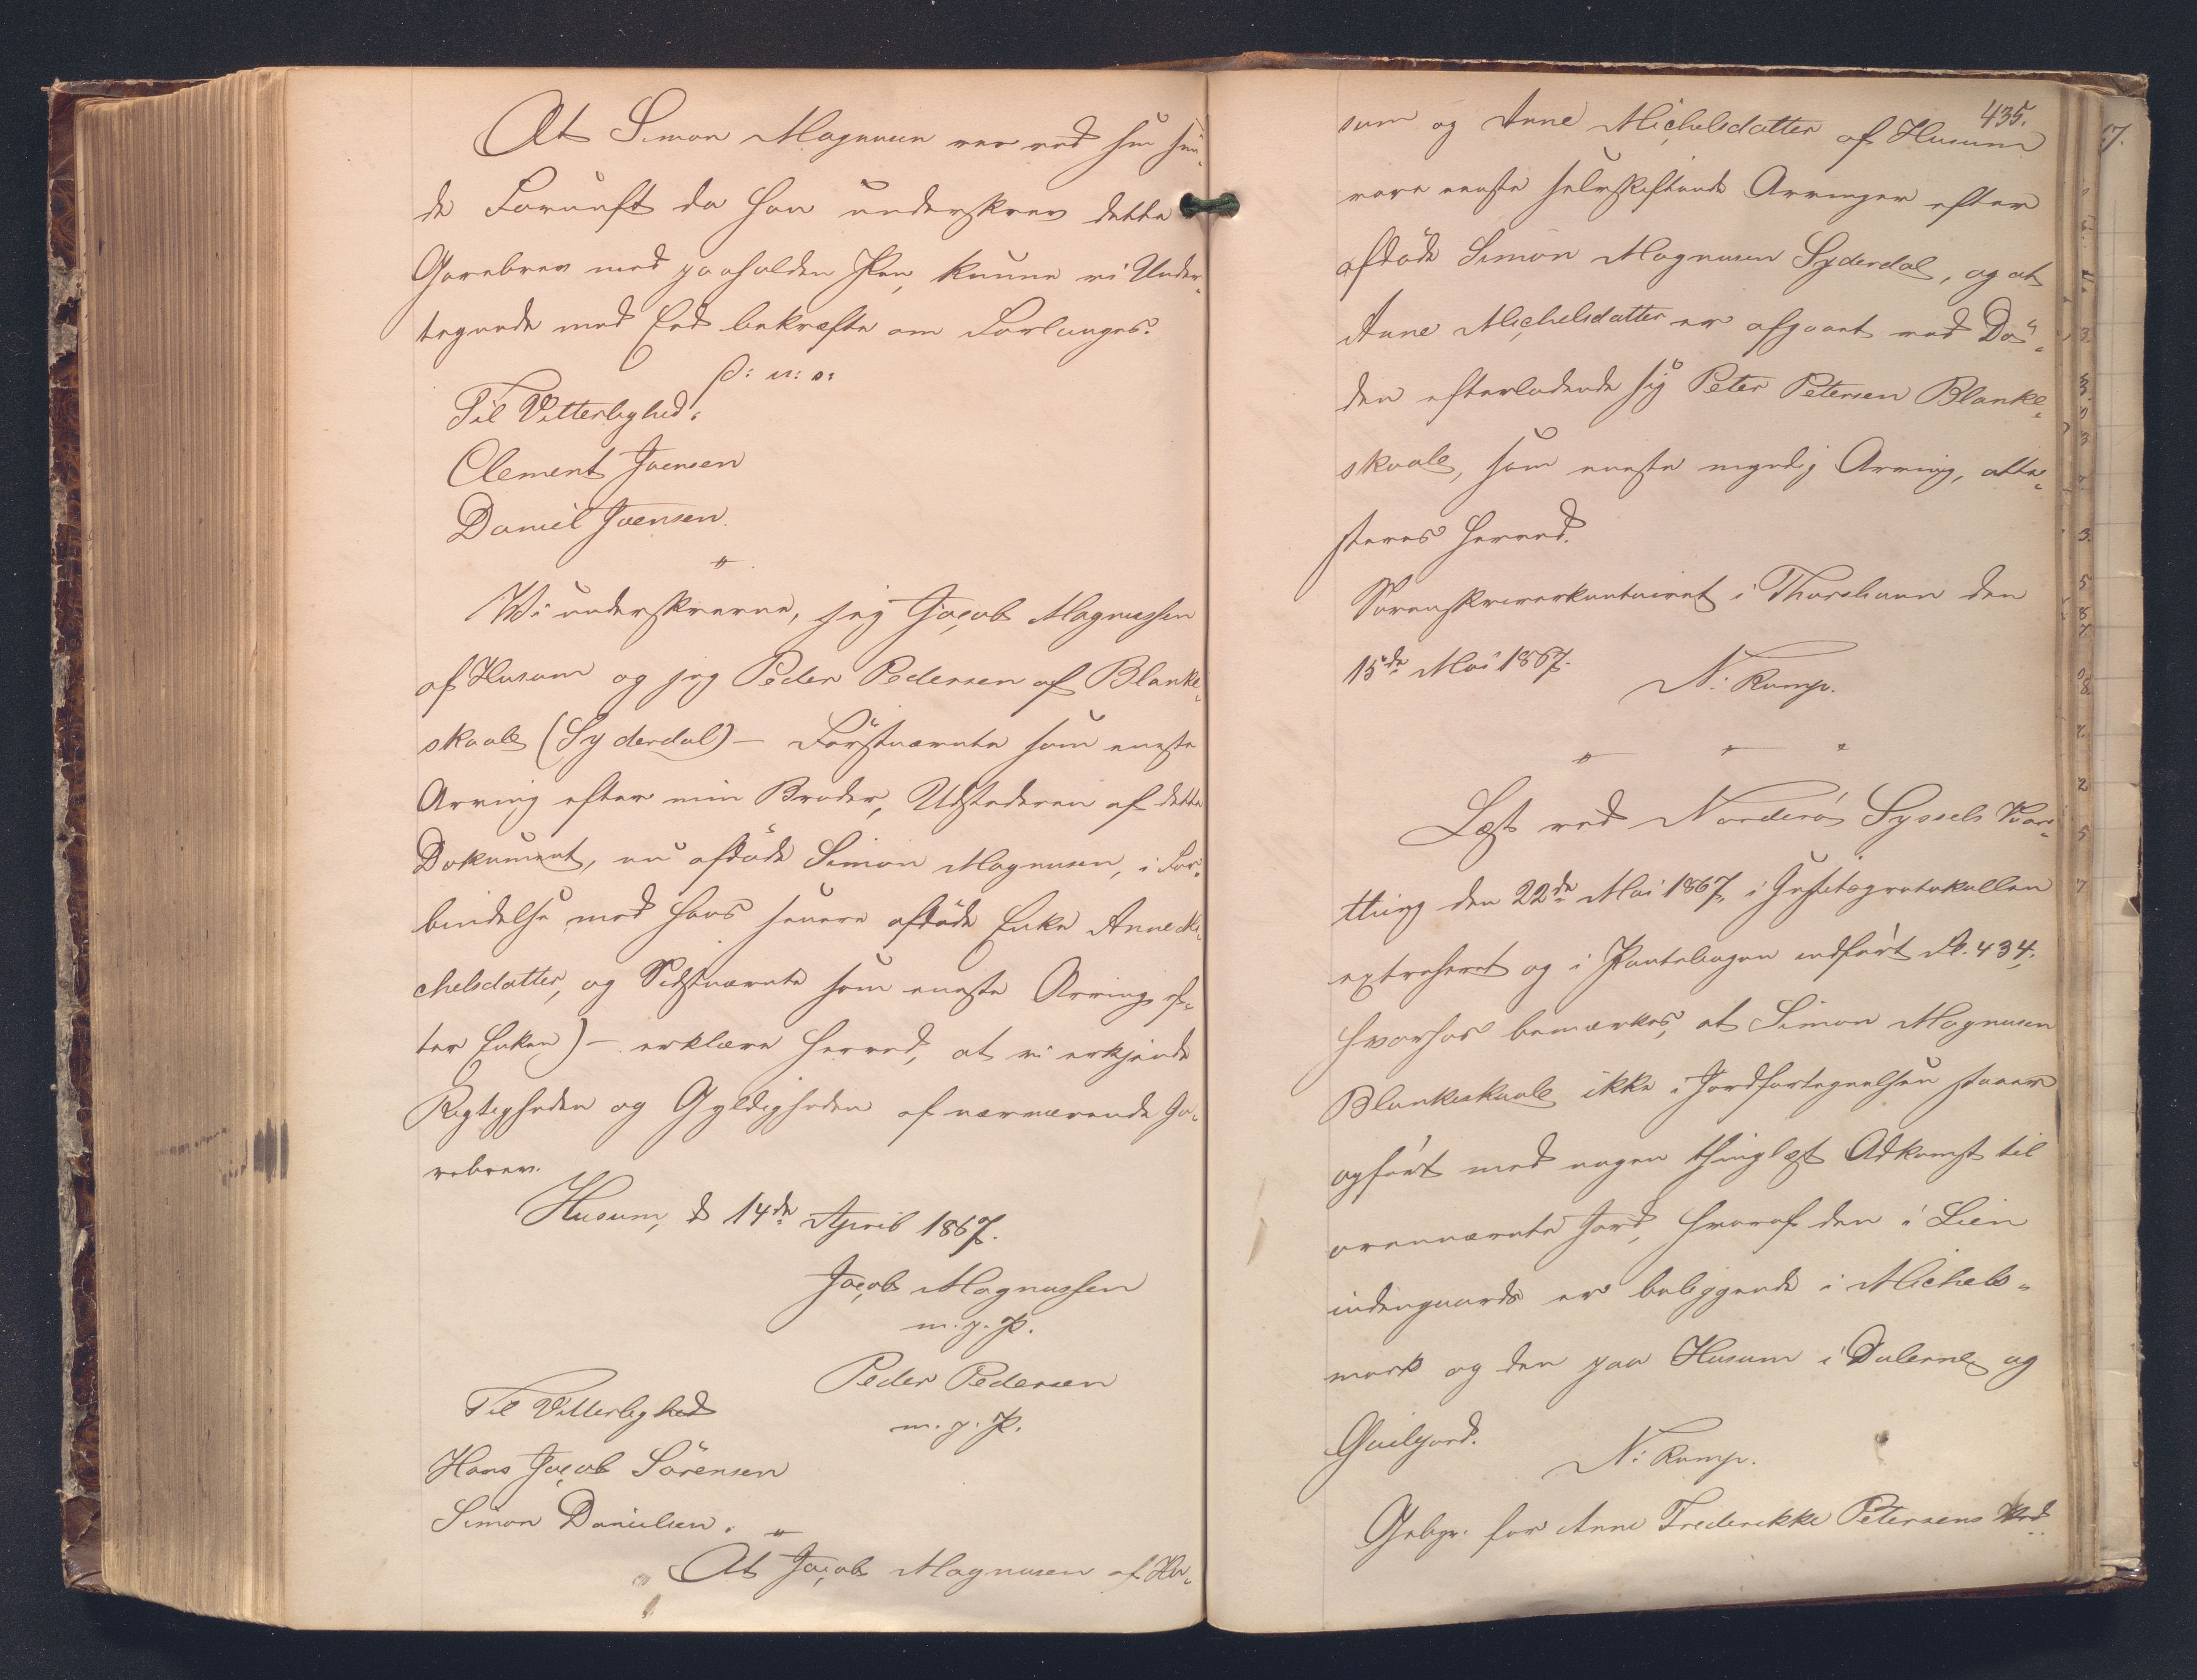 At Simon Magnusen var ved sin sun-
de Fornuft da han underskrev dette
Gavebrev med paaholden Pen, kunne vi Under-
tegnede med Eed bekræfte om Forlanges.
D: u: s:
Til Vitterlighed:
Clement Joensen
Daniel Joensen.
"
Wi underskrevne, jeg Jacob Magnussen
af Husum og jeg Peder Pedersen af Blanke-
skaale (Syderdal) – Førstnævnte som eneste
Arving efter min Broder, Udstederen af dette
Dokument, nu afdøde Simon Magnusen, i For-
bindelse med hans senere afdøde Enke Anne Mi-
chelsdatter, og Sidstnævnte som eneste Arving ef-
ter Enken) – erklære herved, at vi erkjende
Rigtigheden og Gyldigheden af nærværende Ga-
vebrev.
Husum, d 14de April 1867.
Jacob Magnussen
m. p. P.
Peder Pedersen
m. p. P.
Til Vitterlighed
Hans Jacob Sörensen
Simon Danielsen.
"
At Jacob Magnusen af Hu-
435.
sum og Anne Michelsdatter af Husum
vare eneste selvskiftende Arvinger efter
afdøde Simon Magnusen Syderdal, og at
Anne Michelsdatter er afgaaet ved Dø-
den efterladende sig Peter Petersen Blanke-
skaale, som eneste myndig Arving, atte-
steres herved.
Sorenskriverkontoiret i Thorshavn den
15de Mai 1867.
N: Kamp.
" " "
Læst ved Norderö Syssels Vaar-
thing den 22de Mai 1867, i Justitsprotokollen
extraheret og i Pantebogen indført Fol. 434,
hvorhos bemærkes, at Simon Magnusen
Blankeskaale ikke i Jordfortegnelsen staaer
opført med nogen thinglæst Adkomst til
ovennævnte Jord, hvoraf den i Lien
indengaards er beliggende i Michels-
mark og den paa Husum i Dalerne og
N: Kamp.
Gebyr. for Anne Frederikke Petersens